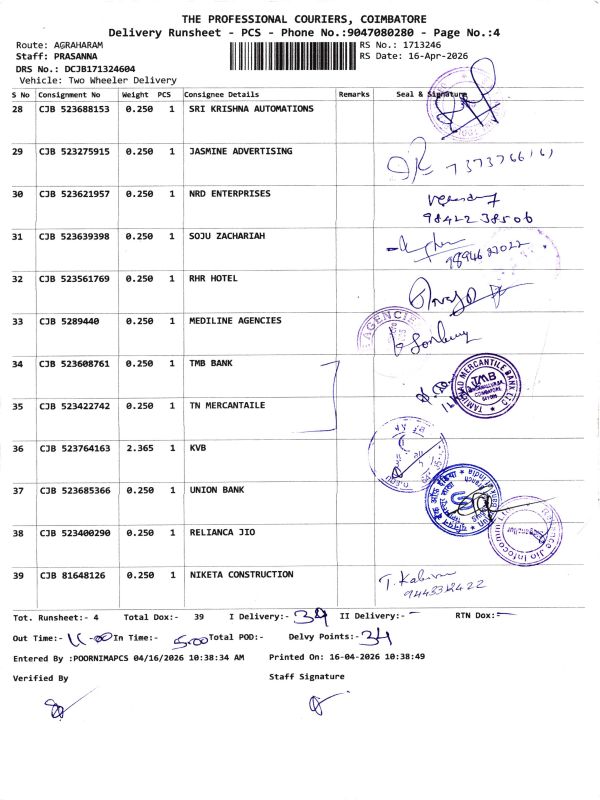 THE PROFESSIONAL COURIERS, COIMBATORE
Delivery Runsheet - PCS - Phone No.:9047080280 - Page No.:4
Route: AGRAHARAM RS No.: 1713246
Staff: PRASANNA RS Date: 16-Apr-2026
DRS No.: DCJB171324604
Vehicle: Two Wheeler Delivery
S No Consignment No Weight PCS Consignee Details Remarks Seal & Signature
28 CJB 523688153 0.250 1 SRI KRISHNA AUTOMATIONS
29 CJB 523275915 0.250 1 JASMINE ADVERTISING
30 CJB 523621957 0.250 1 NRD ENTERPRISES
98422 38506
31 CJB 523639398 0.250 1 SOJU ZACHARIAH
32 CJB 523561769 0.250 1 RHR HOTEL
33 CJB 5289440 0.250 1 MEDILINE AGENCIES
AGENCIE
34 CJB 523608761 0.250 1 TMB BANK
TAMILNAD MERCANTILE BANK LTD
TMB
COIMBATORE
35 CJB 523422742 0.250 1 TN MERCANTAILE
36 CJB 523764163 2.365 1 KVB
37 CJB 523685366 0.250 1 UNION BANK
38 CJB 523400290 0.250 1 RELIANCA JIO
39 CJB 81648126 0.250 1 NIKETA CONSTRUCTION
Tot. Runsheet:- 4 Total Dox:- 39 I Delivery:- 39 II Delivery:- RTN Dox:-
Out Time:- 11-00 In Time:- 5.00 Total POD:- Delvy Points:- 34
Entered By :POORNIMAPCS 04/16/2026 10:38:34 AM Printed On: 16-04-2026 10:38:49
Verified By Staff Signature